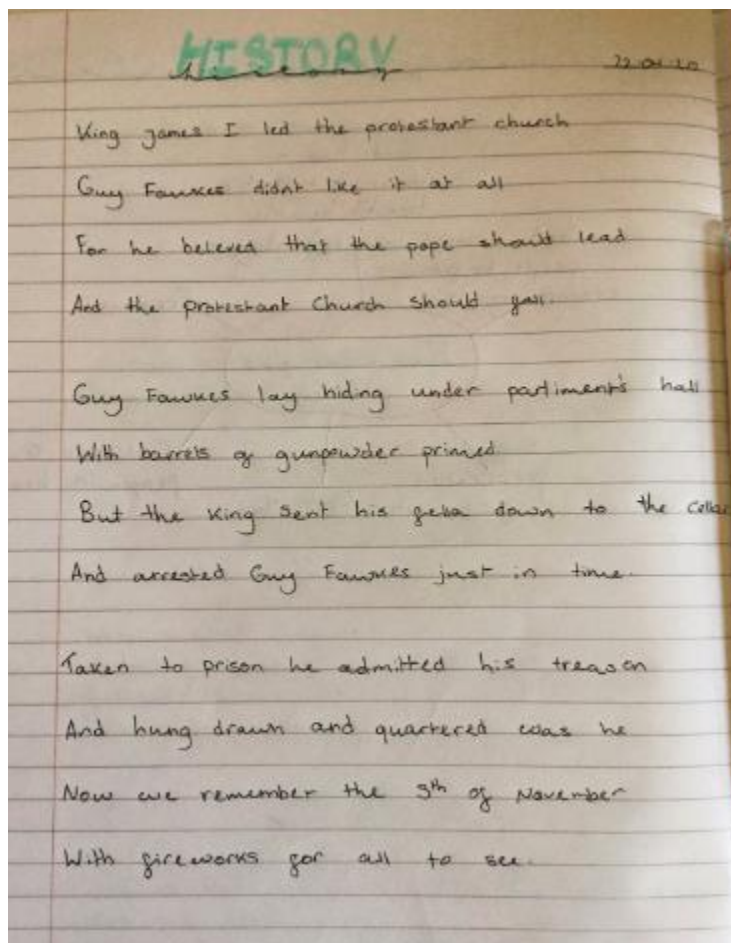 HISTORY
history
King james I led the protestant church
Guy Fawkes didnt like it at all
For he beleved that the pope should lead
And the protestant Church should fall.
Guy Fawkes lay hiding under parliment's hall
With barrels of gunpowder primed
But the King sent his down to the cellar
And arrested Guy Fawkes just in time.
Taken to prison he admitted his treason
And hung drawn and quartered was he
Now we remember the 5th of November
With fireworks for all to see.